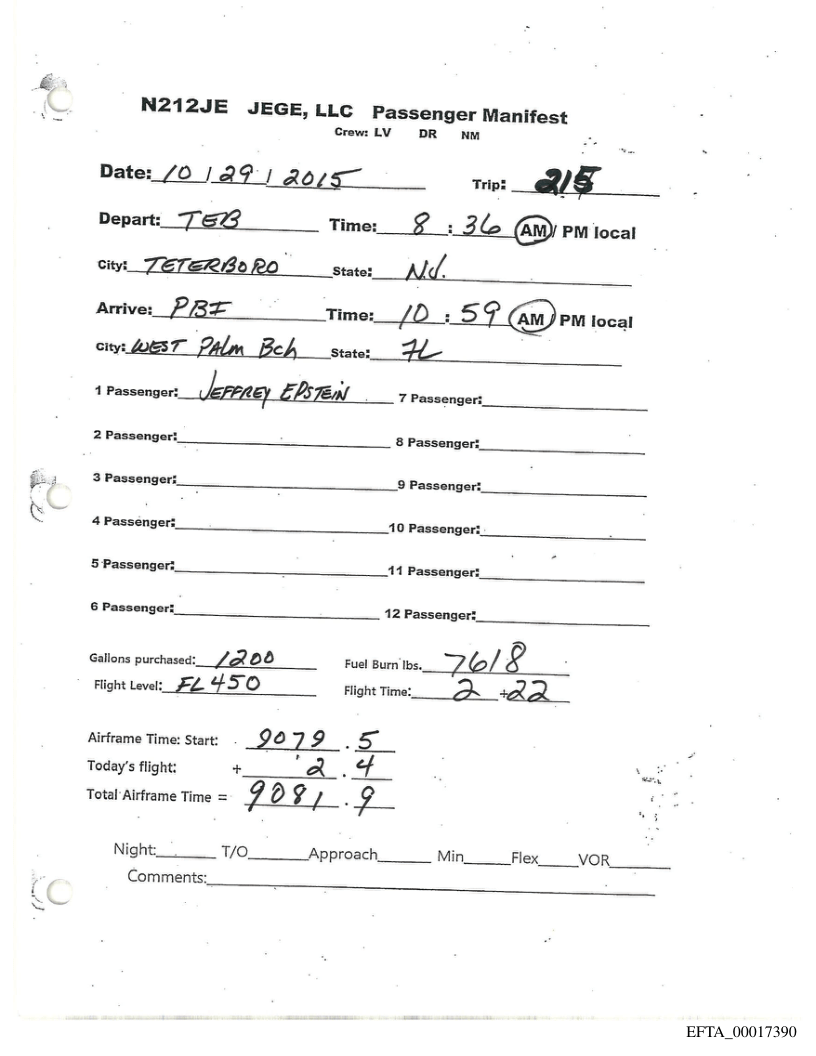 N212JE JEGE, LLC Passenger Manifest
Crew: LV DR NM
Date: 10 / 29 / 2015 Trip: 215
Depart: TEB Time: 8 : 36 AM/ PM local
City: TETERBORO State: NJ.
Arrive: PBI Time: 10 : 59 AM/ PM local
City: WEST PALM Bch State: FL
1 Passenger: JEFFREY EPSTEIN 7 Passenger:
2 Passenger: 8 Passenger:
3 Passenger: 9 Passenger:
4 Passenger: 10 Passenger:
5 Passenger: 11 Passenger:
6 Passenger: 12 Passenger:
Gallons purchased: 1200 Fuel Burn lbs. 7618
Flight Level: FL450 Flight Time: 2 +22
Airframe Time: Start: 9079 . 5
Today's flight: + 2 . 4
Total Airframe Time = 9081 . 9
Night: T/O Approach Min Flex VOR
Comments:
EFTA_00017390